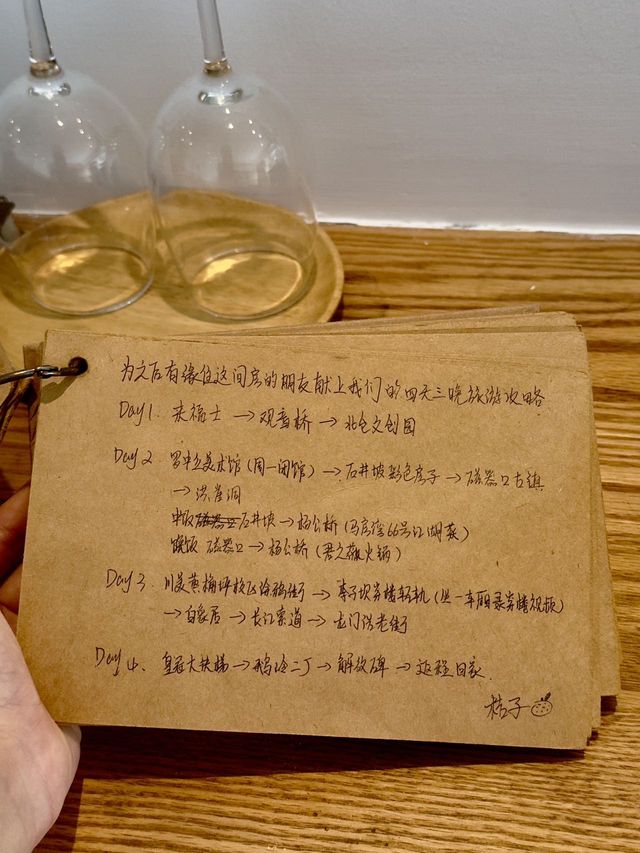 为之后有缘住这间房的朋友献上我们的四天三晚旅游攻略
Day1. 来福士 → 观音桥 → 北仓文创园
Day2 罗中立美术馆(周一闭馆) → 石井坡彩色房子 → 磁器口古镇
→ 洪崖洞
中饭 石井坡 → 杨公桥(马房湾66号江湖菜)
晚饭 磁器口 → 杨公桥(君之薇火锅)
Day3 川美黄桷坪校区涂鸦街 → 李子坝穿楼轻轨(坐一车厢录穿楼视频)
→ 白象居 → 长江索道 → 龙门浩老街
Day4. 皇冠大扶梯 → 鹅岭二厂 → 解放碑 → 返程回家.
桔子